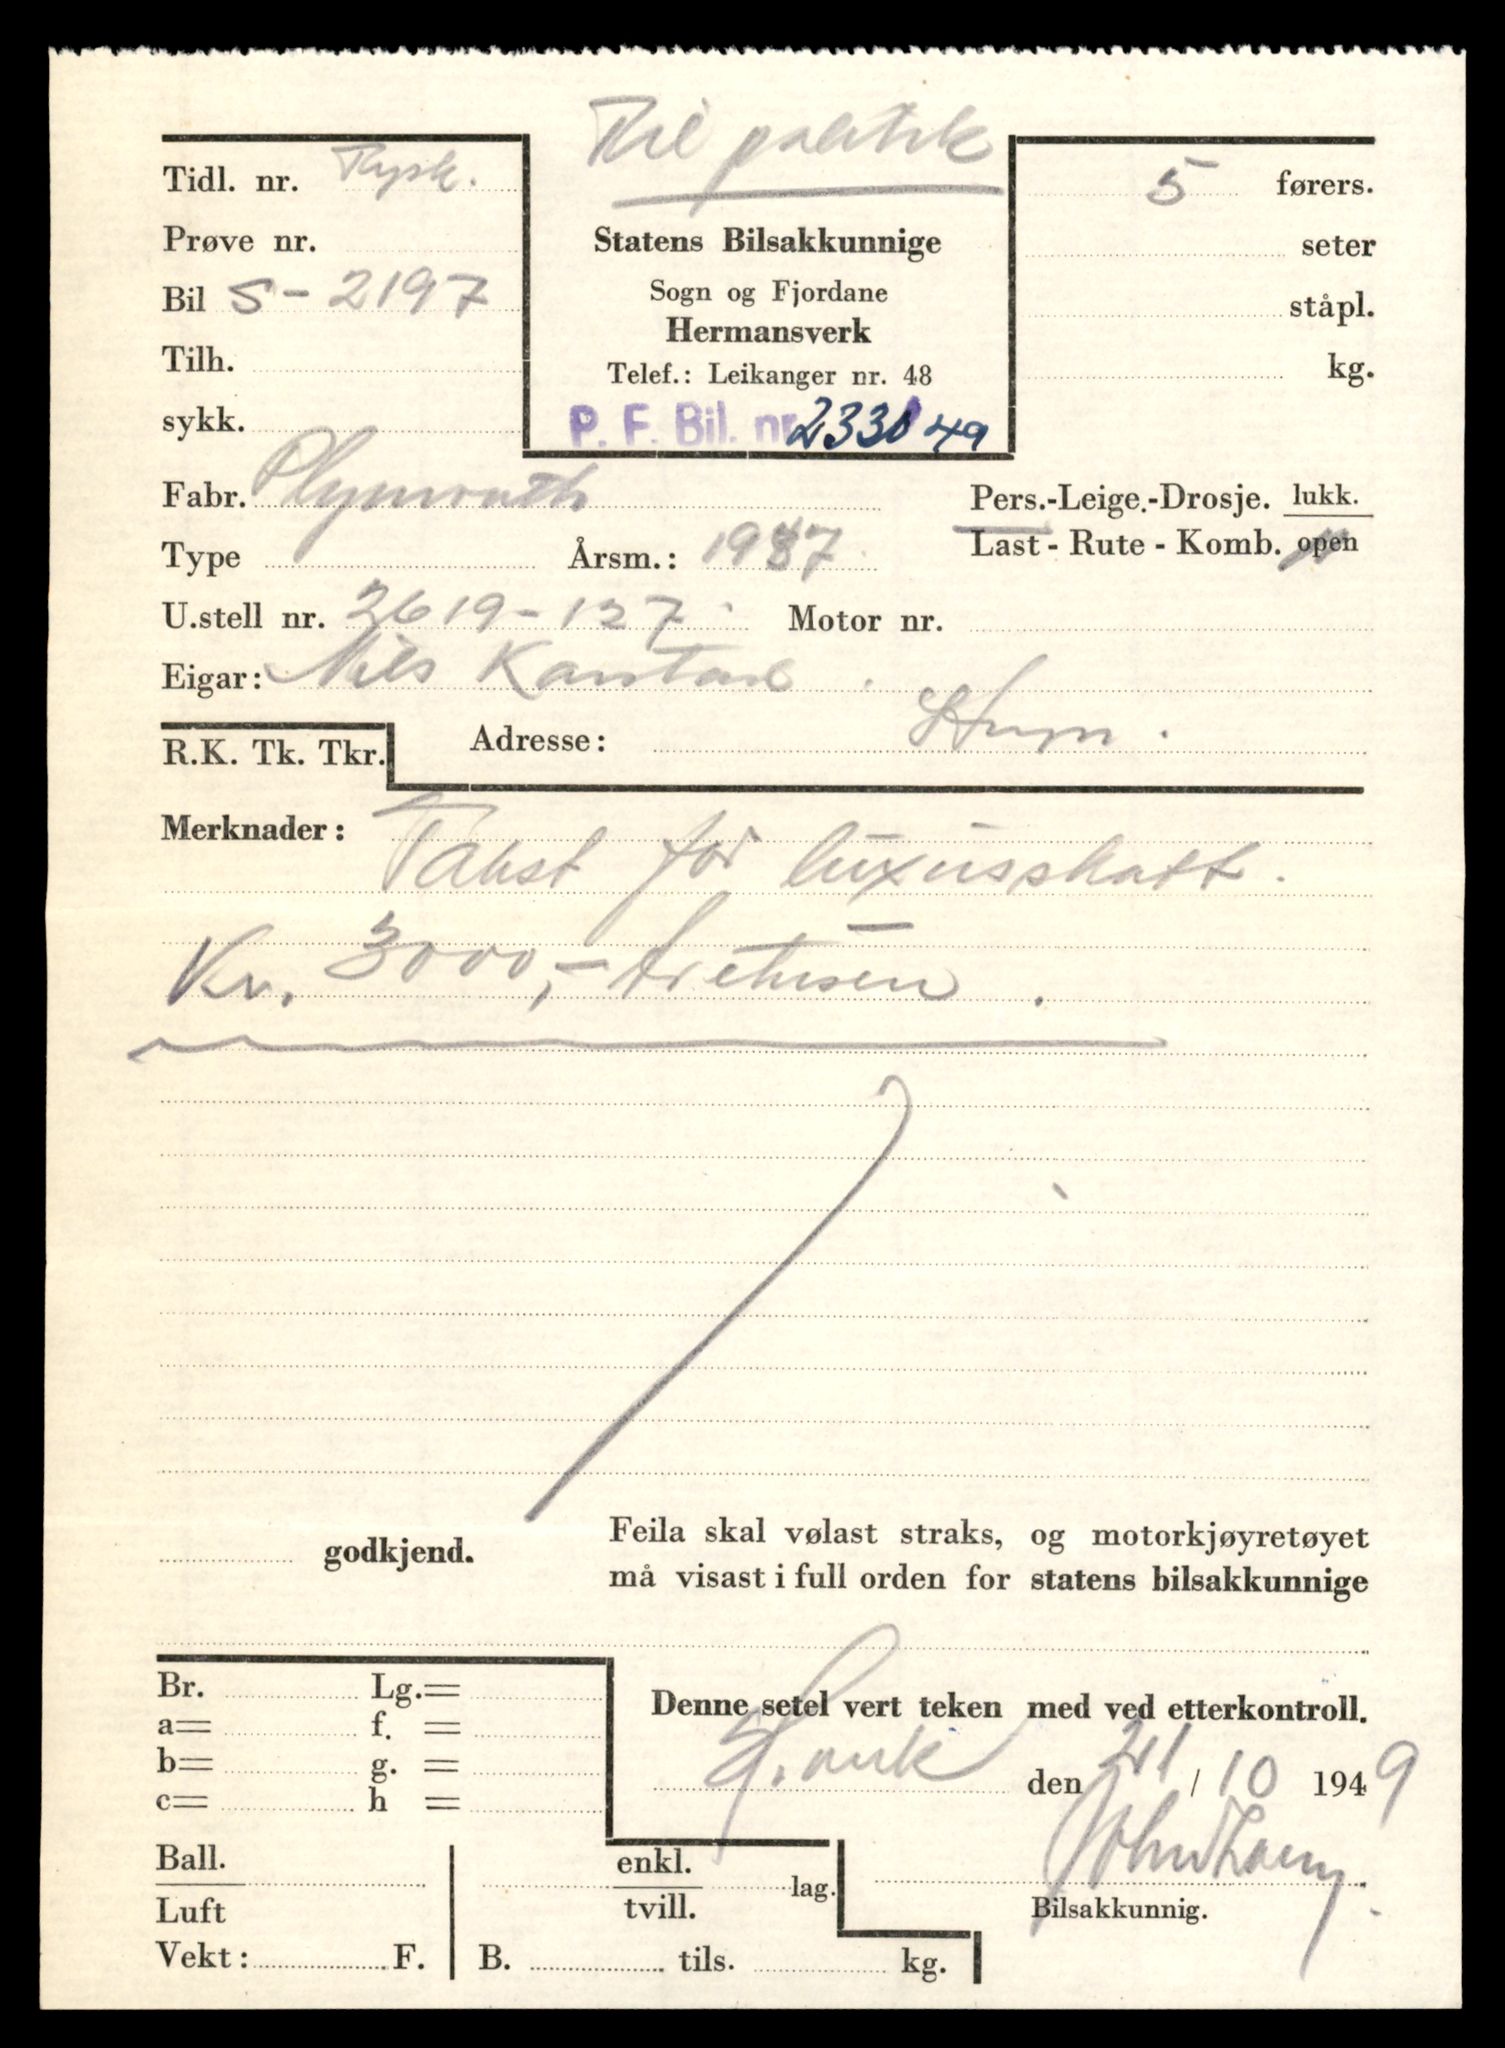 Til politik
Tidl. nr. Tysk.
Prøve nr.
Bil S-2197
Tilh.
sykk.
Statens Bilsakkunnige
Sogn og Fjordane
Hermansverk
Telef.: Leikanger nr. 48
P. F. Bil. nr 2330 49
5 førers.
seter
ståpl.
kg.
Fabr. Plymouth
Pers.-Leige.-Drosje. lukk.
Type Årsm.: 1937
Last - Rute - Komb. open
U.stell nr. 2619-127 Motor nr.
Eigar: Nils
R.K. Tk. Tkr. Adresse:
Merknader: Takst for luxusskatt.
Kr. 3000,- tretusen.
godkjend.
Feila skal vølast straks, og motorkjøyretøyet
må visast i full orden for statens bilsakkunnige
Br. Lg.=
a= f. =
b= g. =
c= h =
Denne setel vert teken med ved etterkontroll.
den 21/10 1949
Ball.
Luft
enkl.
tvill. lag.
Bilsakkunnig.
Vekt: F. B. tils. kg.